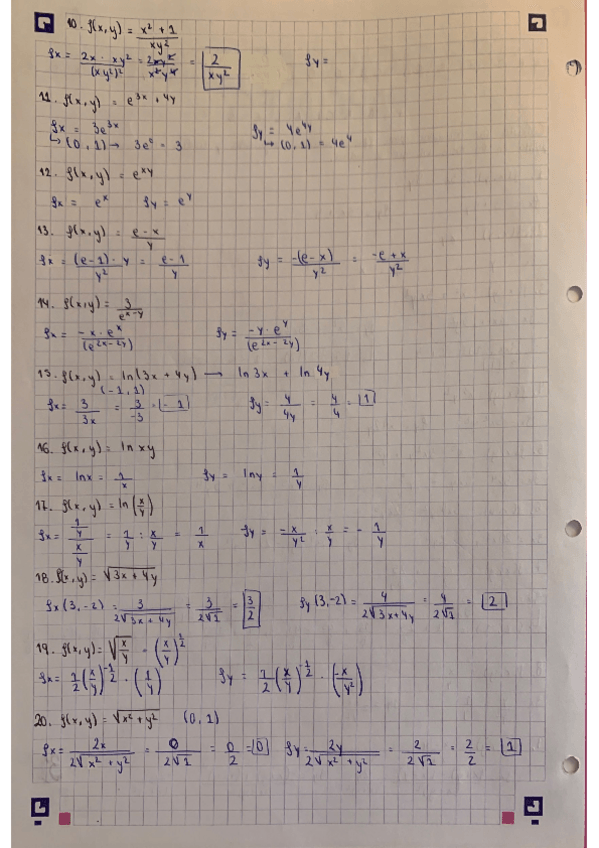 10. f(x,y) = x² + 1 / xy²
fx = 2x · xy² / (xy²)² = 2xy² / x²y⁴ = 2 / xy²   fy =
11. f(x,y) = e^(3x + 4y)
fx = 3e^(3x)   fy = 4e^(4y)
↳ (0,1) → 3e⁰ = 3   ↳ (0,1) = 4e⁴
12. f(x,y) = e^(xy)
fx = e^x   fy = e^y
13. f(x,y) = e - x / y
fx = (e-1) · y / y² = e-1 / y   fy = -(e-x) / y² = -e + x / y²
14. f(x,y) = 3 / e^(x-y)
fx = -x · e^x / (e^(2x-2y))   fy = -y · e^y / (e^(2x-2y))
15. f(x,y) = ln(3x + 4y) → ln3x + ln4y
(-1,1)
fx = 3 / 3x = 3 / -3 = -1   fy = 4 / 4y = 4 / 4 = 1
16. f(x,y) = ln xy
fx = lnx = 1 / x   fy = lny = 1 / y
17. f(x,y) = ln(x/y)
fx = 1/y / x/y = 1/y : x/y = 1/x   fy = -x/y² : x/y = -1/y
18. f(x,y) = √(3x + 4y)
fx(3,-2) = 3 / 2√(3x + 4y) = 3 / 2√1 = 3/2   fy(3,-2) = 4 / 2√(3x+4y) = 4 / 2√1 = 2
19. f(x,y) = √(x/y) = (x/y)^(1/2)
fx = 1/2 (x/y)^(-1/2) · (1/y)   fy = 1/2 (x/y)^(1/2) · (-x/y²)
20. f(x,y) = √(x² + y²)   (0,1)
fx = 2x / 2√(x² + y²) = 0 / 2√1 = 0/2 = 0   fy = 2y / 2√(x² + y²) = 2 / 2√1 = 2/2 = 1